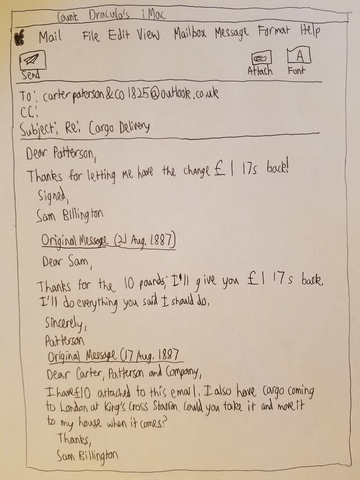 Count Dracula's iMac
Mail File Edit View Mailbox Message Format Help
Send
Attach
A
Font
To: carterpaterson&co1825@outlook.co.uk
CC:
Subject: Re: Cargo Delivery
Dear Patterson,
Thanks for letting me have the change £1 17s back!
Signed,
Sam Billington
Original Message (21 Aug. 1887)
Dear Sam,
Thanks for the 10 pounds; I'll give you £1 17s back.
I'll do everything you said I should do.
Sincerely,
Patterson
Original Message (17 Aug. 1887
Dear Carter, Patterson and Company,
I have £10 attached to this email. I also have cargo coming
to London at King's Cross Station. Could you take it and move it
to my house when it comes?
Thanks,
Sam Billington